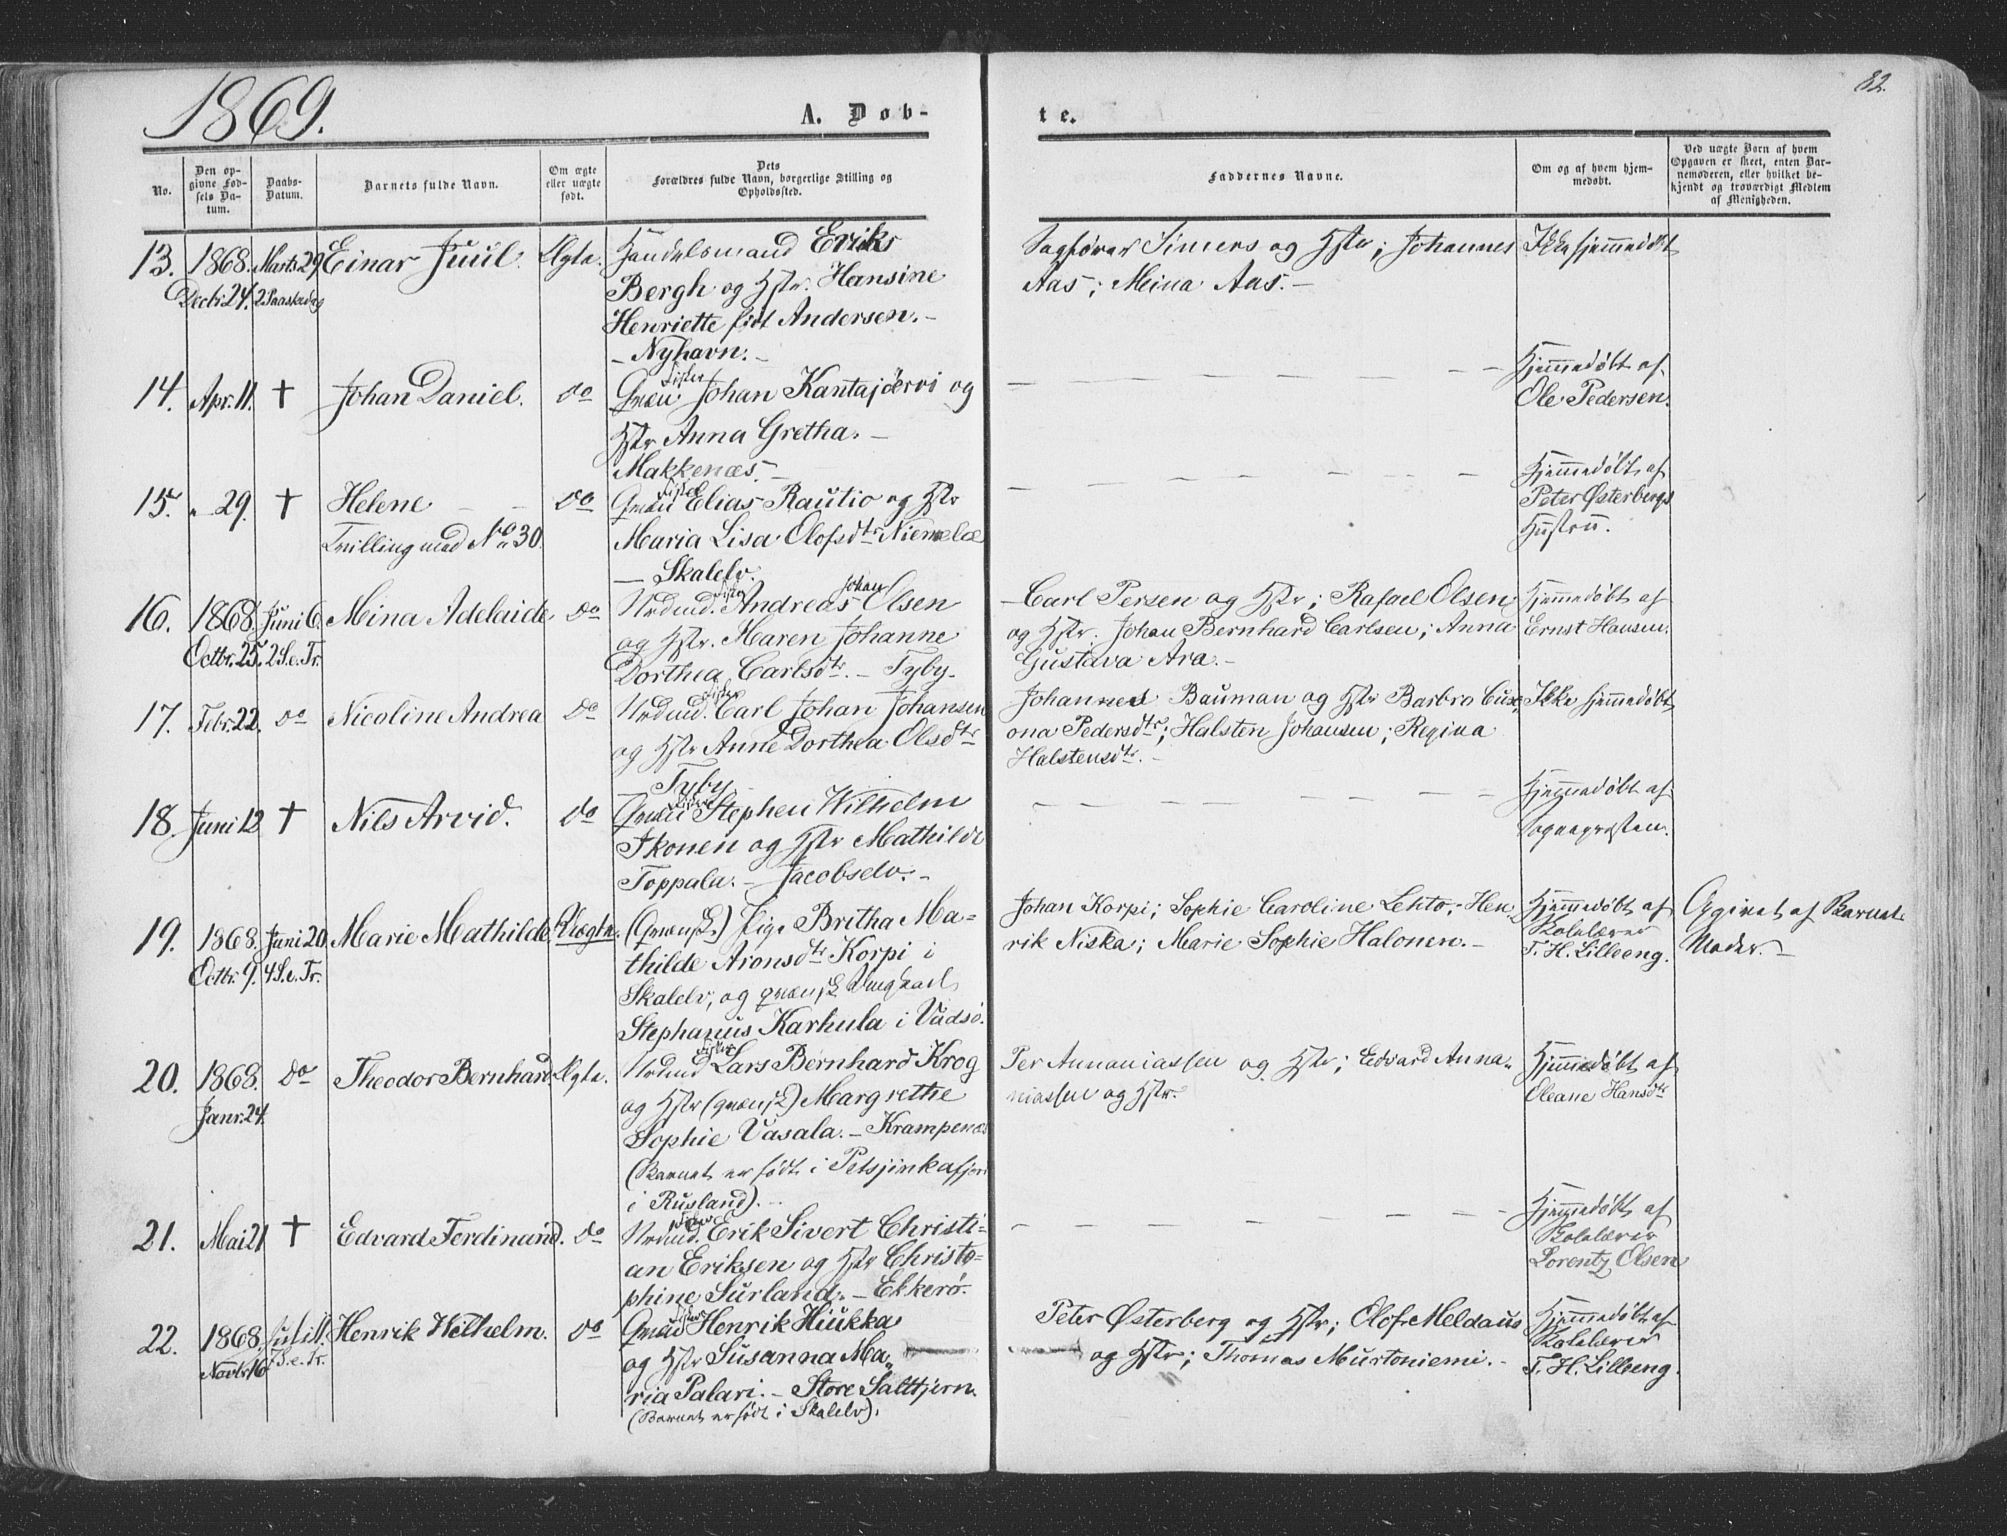 1869.
A. Døb-
te.
82.
No.
Den op-
givne Fød-
sels Da-
tum.
Daabs-
Datum.
Barnets fulde Navn.
Om ægte
eller uægte
født.
Dets
Forældres fulde Navn, borgerlige Stilling og
Opholdssted.
Faddernes Navne.
Om og af hvem hjem-
medøbt.
Ved uægte Børn af hvem
Opgaven er skeet, enten Bar-
nemoderen, eller hvilket be-
kjendt og troværdigt Medlem
af Menigheden.
13. 1868. Marts 29 Einar Juul. Ægte. Handelsmand Eriks
Decbr. 24. 2 Paaskedag
Bergh og Hstr. Hansine
Henriette født Andersen.-
- Nyhavn.-
Sagfører Simers og Hstr; Johannes
Aas; Meina Aas.-
Ikke hjemmedøbt
14. Apr. 11. † Johan Daniel. do
Fisker
Qvæn. Johan Kantajærvi og
Hstr Anna Gretha. -
Makkenæs.-
Hjemmedøbt af
Ole Pedersen.
15. " 29. † Helene do
Tvilling med No 30.
Fisker
Qvæn Elias Rautio og Hstr
Maria Lisa Olofsdtr Niemelæ
- Skalelv.
Hjemmedøbt af
Peter Østerbergs
Hustru.
16. 1868. Juni 6. Mina Adelaide do
Octbr. 25. 2 S. e. Tr.
Fisker Johan
Nrdmd. Andreas Olsen
og Hstr. Maren Johanne
Dorthea Carlsdtr. - Tyby.
Carl Persen og Hstr; Rafael Olsen
og Hstr. Johan Bernhard Carlsen; Anna
Gustava Ara.-
Hjemmedøbt af
Ernst Hansen.
17. Febr. 22. do Nicoline Andrea do
Fisker
Nrdmd. Carl Johan Johansen
og Hstr Anne Dorthea Olsdtr
- Tyby -
Johannes Bauman og Hstr Barbro Cux-
ona Pedersdtr; Halsten Johansen; Regina
Halstensdtr. -
Ikke hjemmedøbt
18. Juni 12 † Nils Arvid. do
Fisker
Qvæn Stephen Wilhelm
Ikonen og Hstr Mathilde
Toppala. - Jacobselv. -
Hjemmedøbt af
Sognepresten.
19. 1868. Juni 20. Marie Mathilde Uægte.
Octbr. 9. 4 S. e. Tr.
(Qvænsk) Pige Britha Ma-
thilde Aronsdtr Korpi i
Skalelv, og qvænsk Ungkarl
Stephanus Karhula i Vadsø.
Johan Korpi; Sophie Caroline Lehto; Hen-
rik Niska; Marie Sophie Halonen. -
Hjemmedøbt af
Skolelærer
T. H. Lilleeng.
Opgivet af Barnets
Moder. -
20. 1868. do Theodor Bernhard Ægte.
Janr. 24.
Fisker
Nrdmd Lars Bernhard Krog
og Hstr (qvænsk) Margrethe
Sophie Vasala. - Krampenæs
(Barnet er født i Petsjinkafjor
i Rusland).
Per Annaniassen og Hstr; Edvard Anna-
niassen og Hstr.
Hjemmedøbt af
Oleane Hansdtr
21. Mai 21 † Edvard Ferdinand. do
Fisker
Nrdmd. Erik Sivert Christi-
an Eriksen og Hstr Christo-
phine Surland. - Ekkerø.
Hjemmedøbt af
Skolelærer
Lorentz Olsen
22. 1868. Juli 11. Henrik Wilhelm. do
Novbr. 16 7 S. e. Tr.
Fisker
Qvæn Henrik Hiukka
og Hstr Susanna Ma-
ria Palari. - Store Saltfjern.
(Barnet er født i Skalelv).
Peter Østerberg og Hstr; Olof Meldaus
og Hstr; Thomas Murtoniemi. -
Hjemmedøbt af
Skolelærer
T. H. Lilleeng.